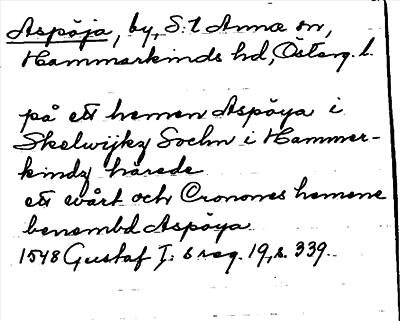 Aspöja, by, S:t Anna sn,
Hammarkinds hd, Österg. l.
på ett hemen Aspöya i
Skelwijkz Sochn i Hammer-
kindz härede
ett wårt och Cronones hemene
benembd Aspöya
1548 Gustaf I:s reg. 19, s. 339.